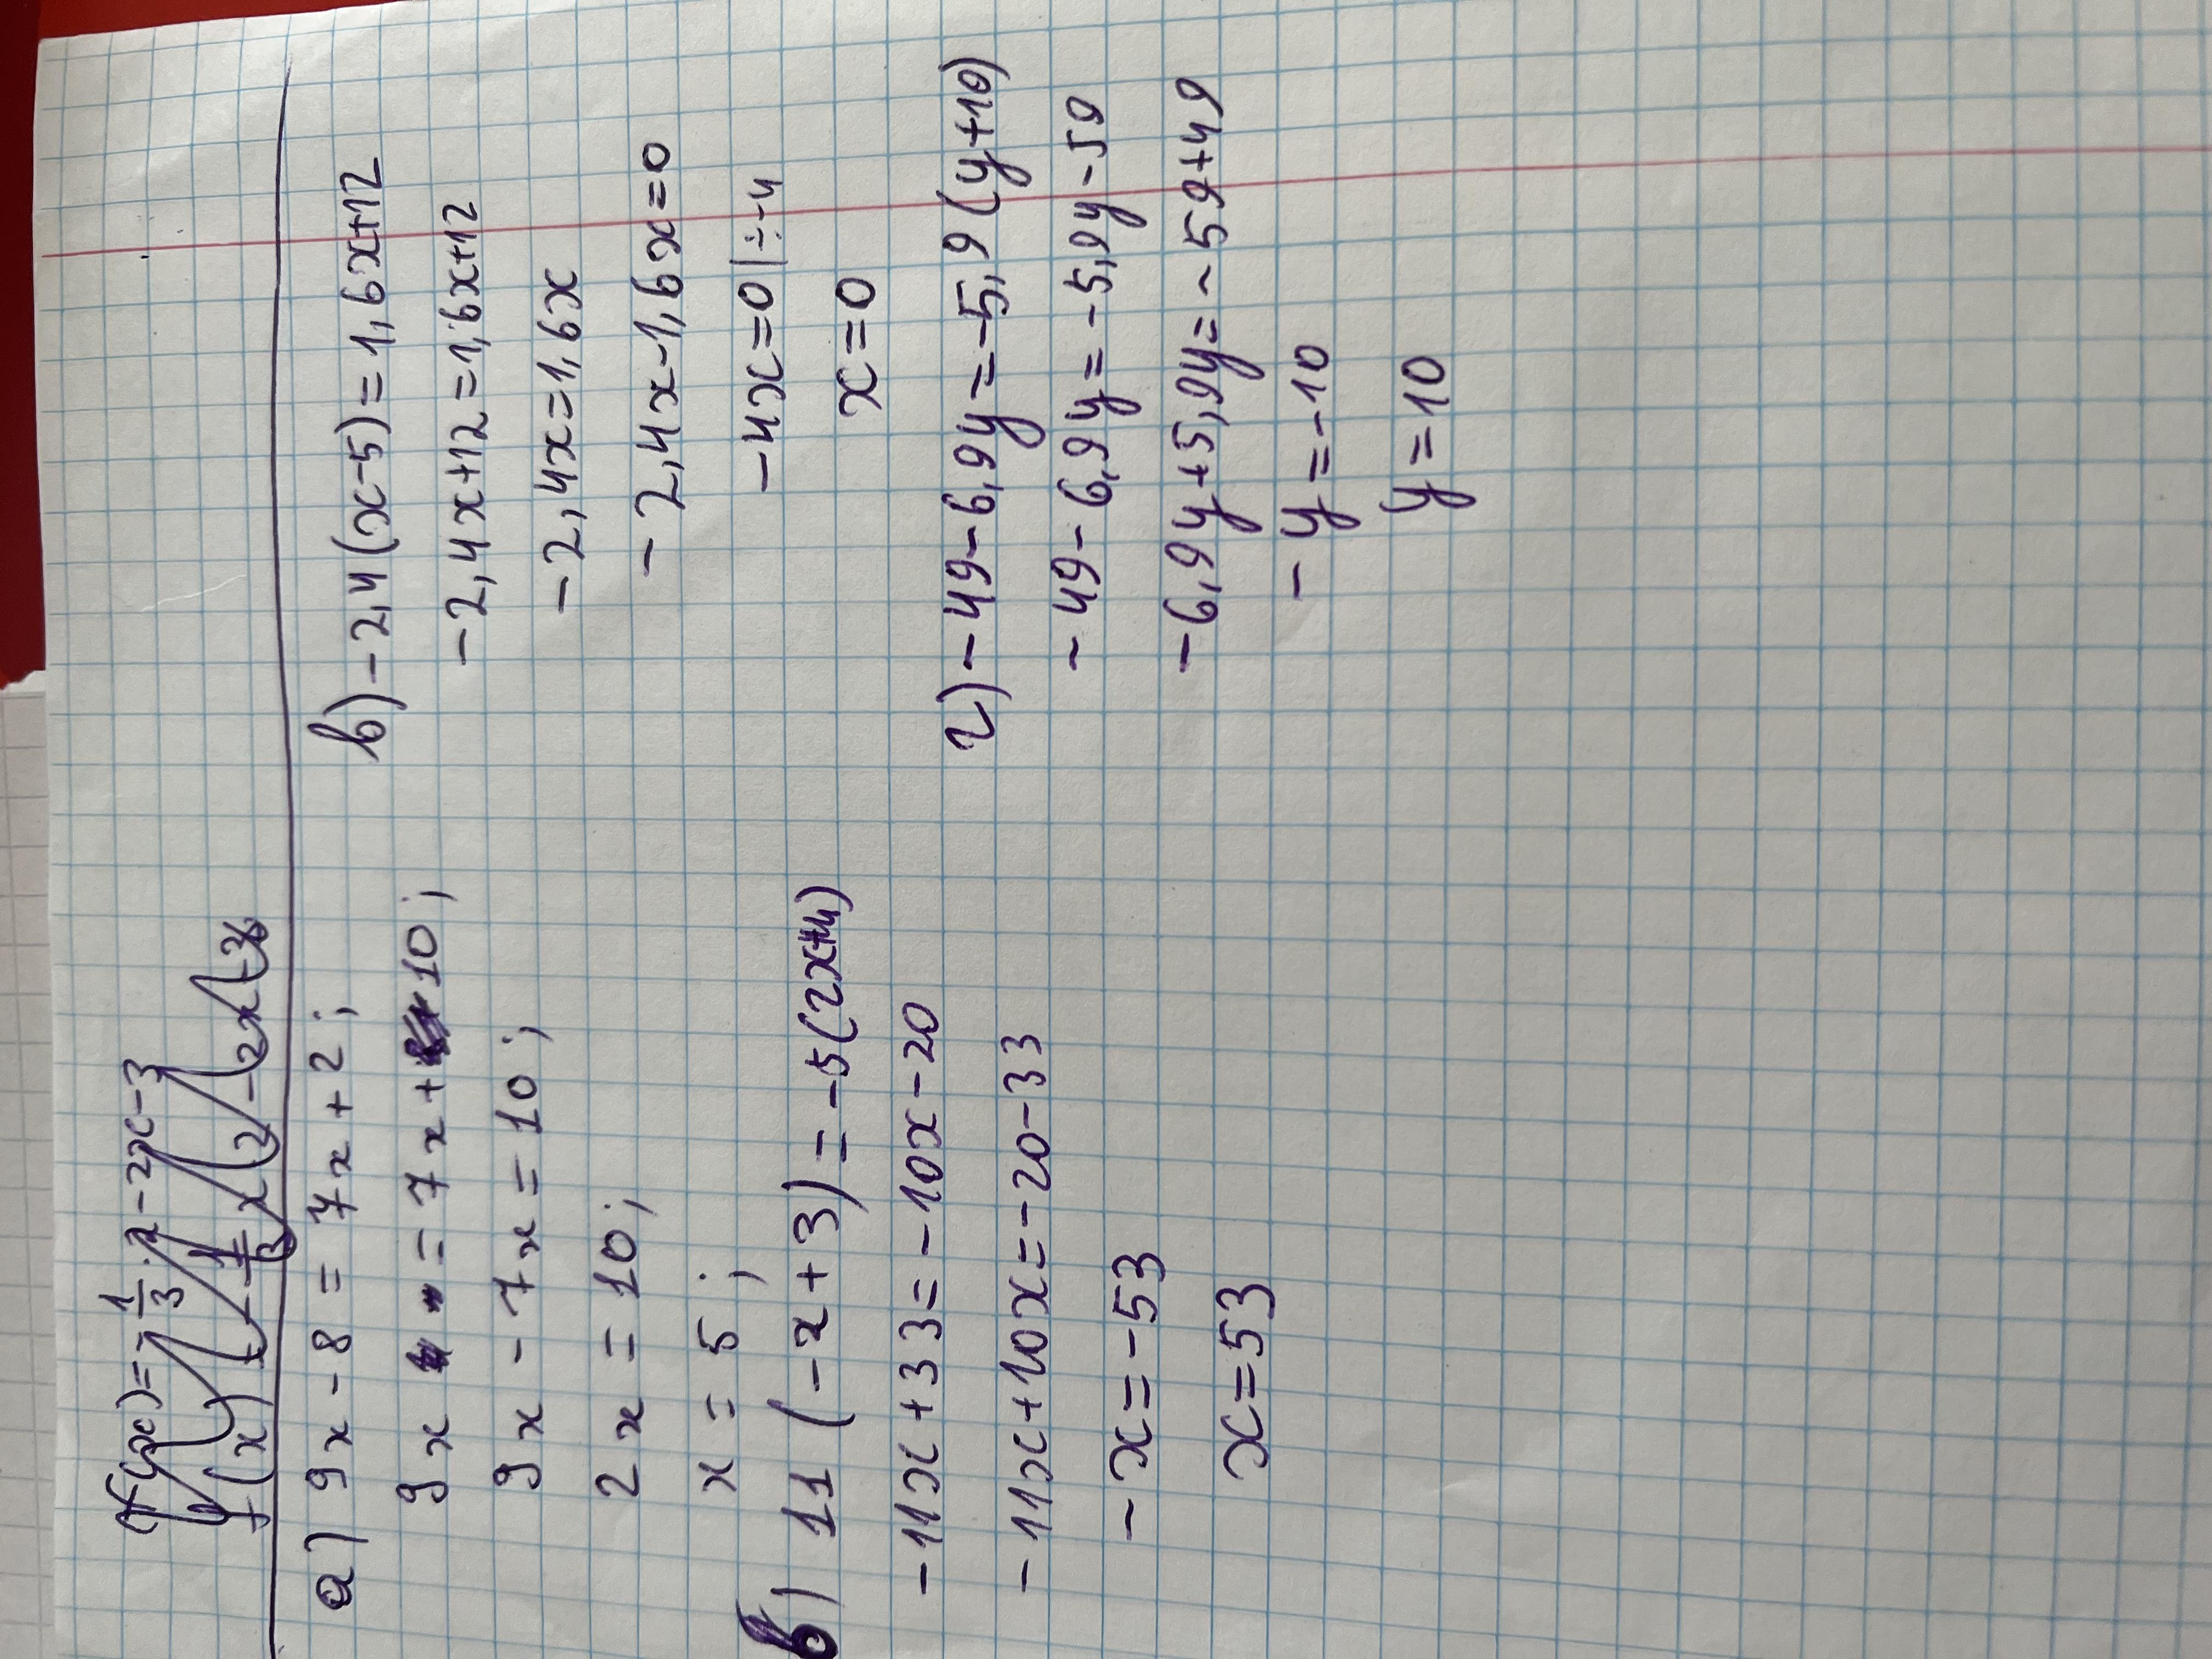 f(x)=-1/3·x-2x-3
f(x)
а) 9x-8=7x+2;
9x=7x+10;
9x-7x=10;
2x=10;
x=5;
б) 11(-x+3)=-5(2x+4)
-11x+33=-10x-20
-11x+10x=-20-33
-x=-53
x=53
в)-2,4(x-5)=1,6x+12
-2,4x+12=1,6x+12
-2,4x=1,6x
-2,4x-1,6x=0
-4x=0|÷-4
x=0
г)-49-6,9y=-5,9(y+10)
-49-6,9y=-5,9y-59
-6,9y+5,9y=-59+49
-y=-10
y=10